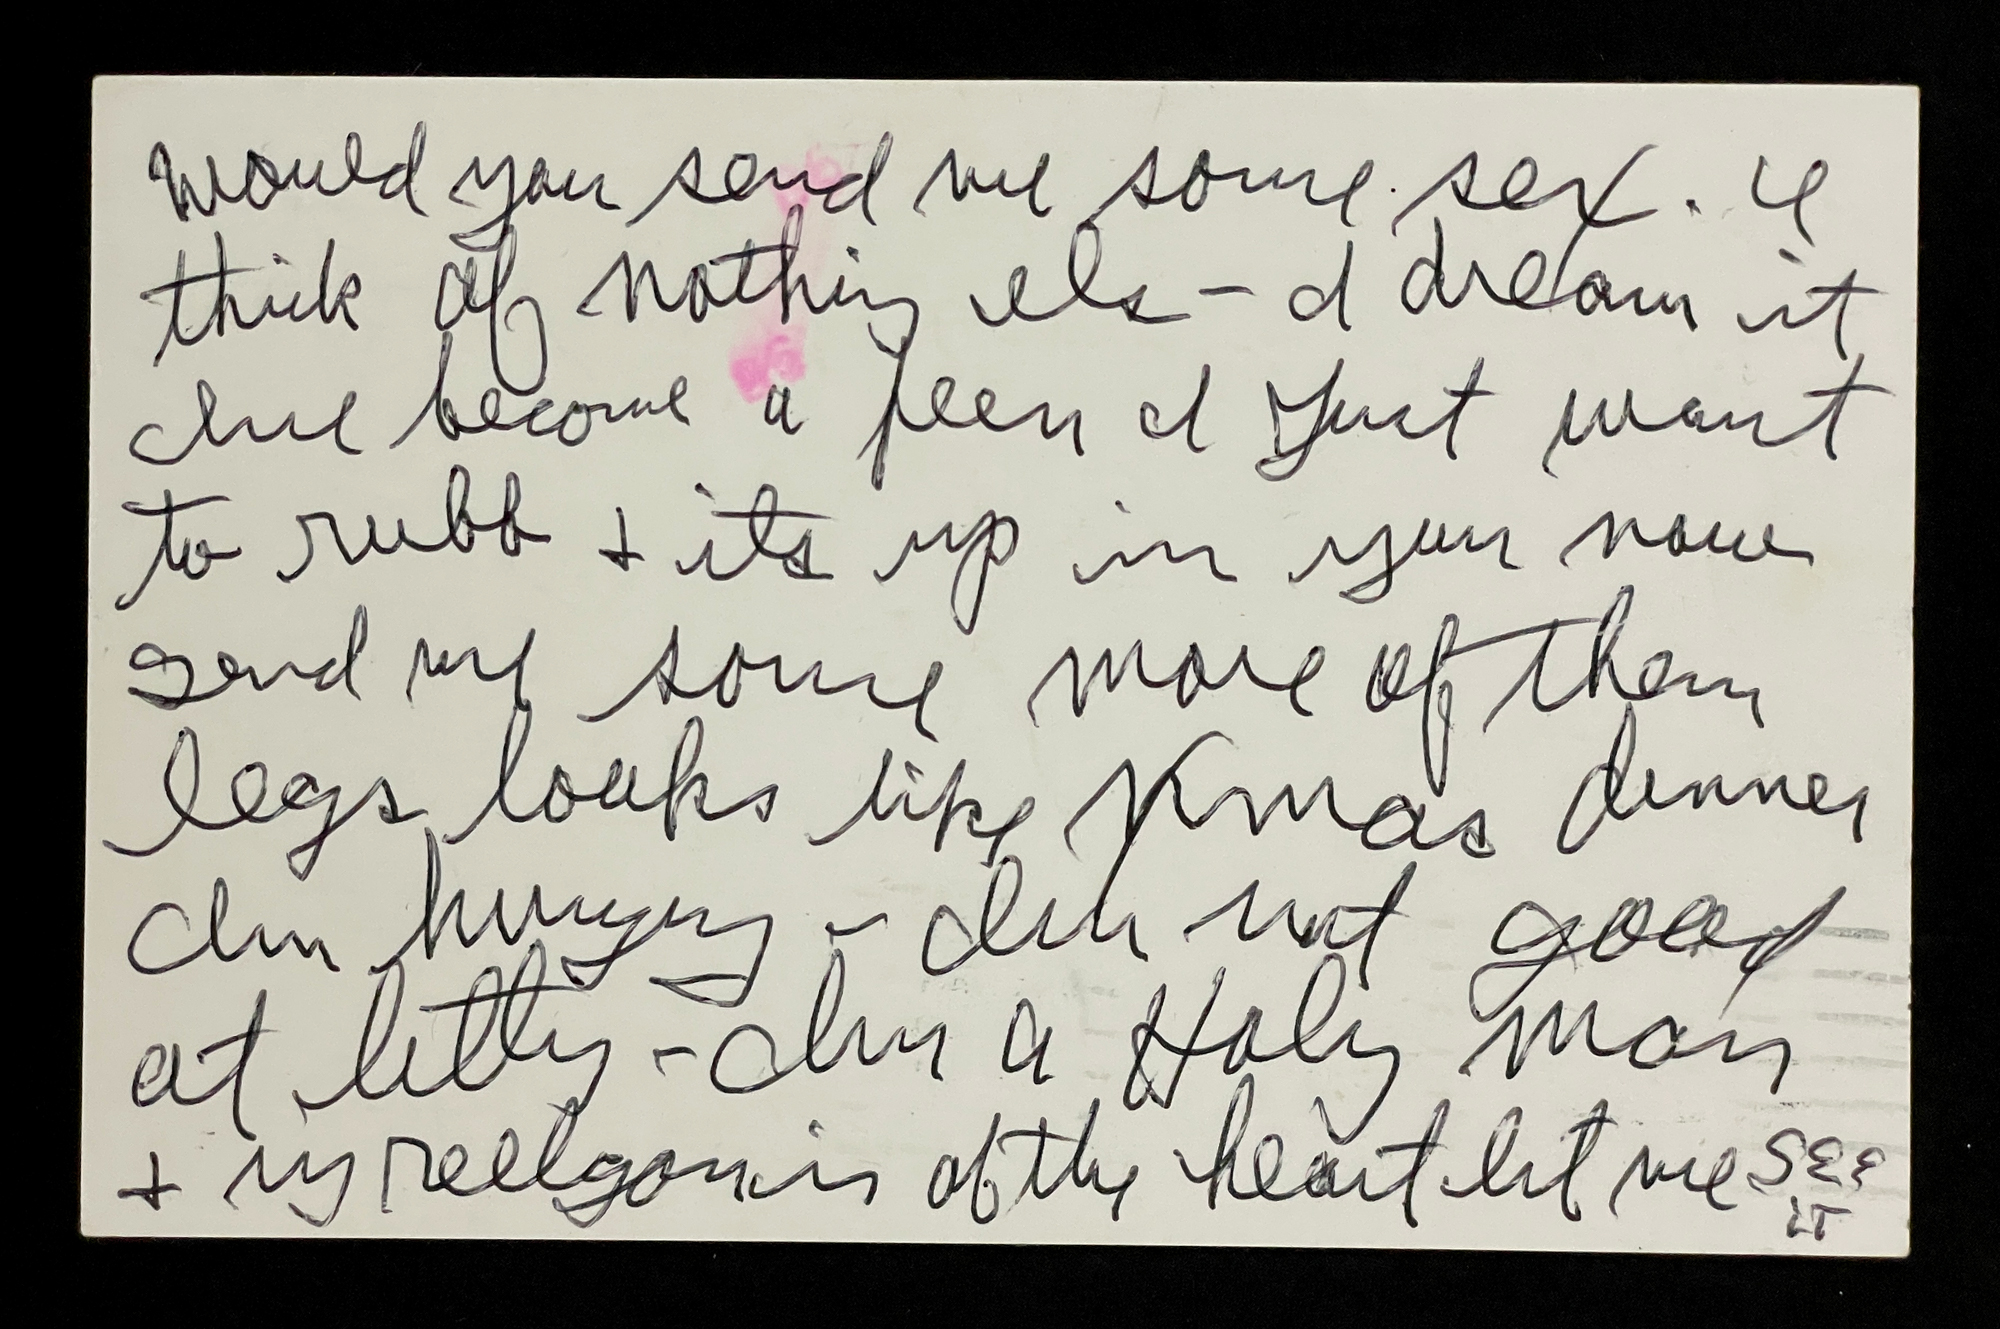 Would you send me some sex. ie
thick of nothing els - I dream it
Ive become a feen I Just want
to rubb + its up in you now
send me some more of them
legs looks like Xmas denner
Im hungry - Im not good
at letting - Im a Holy man
+ my reelgonin of the heart let me SEE
IT